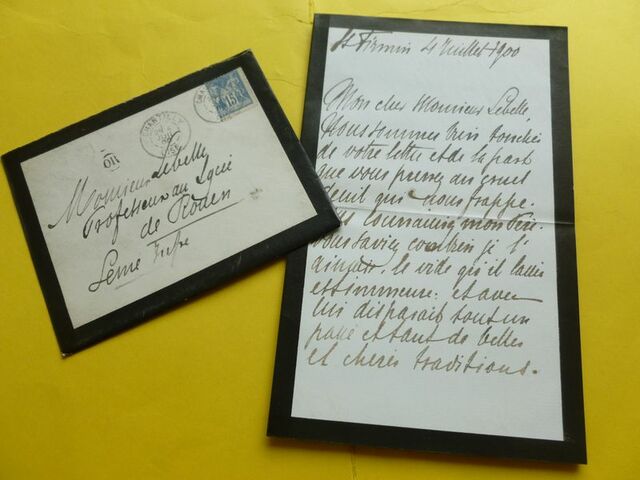 CHANTILLY
OISE
15
Monsieur Lebelle
Professeur au Lycée
de Rouen
Seine Infre
St Firmin 4 Juillet 1900
Mon cher Monsieur Lebelle,
Nous sommes très touchés
de votre lettre et de la part
que vous prenez au cruel
deuil qui nous frappe.
connaissiez mon Père.
vous saviez combien je l'
aimais. le vide qu'il laisse
est immense. et avec
lui disparait tout un
passé et tant de belles
et chères traditions.